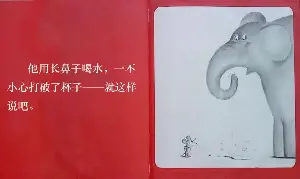 他用长鼻子喝水，一不
小心打破了杯子——就这样
说吧。